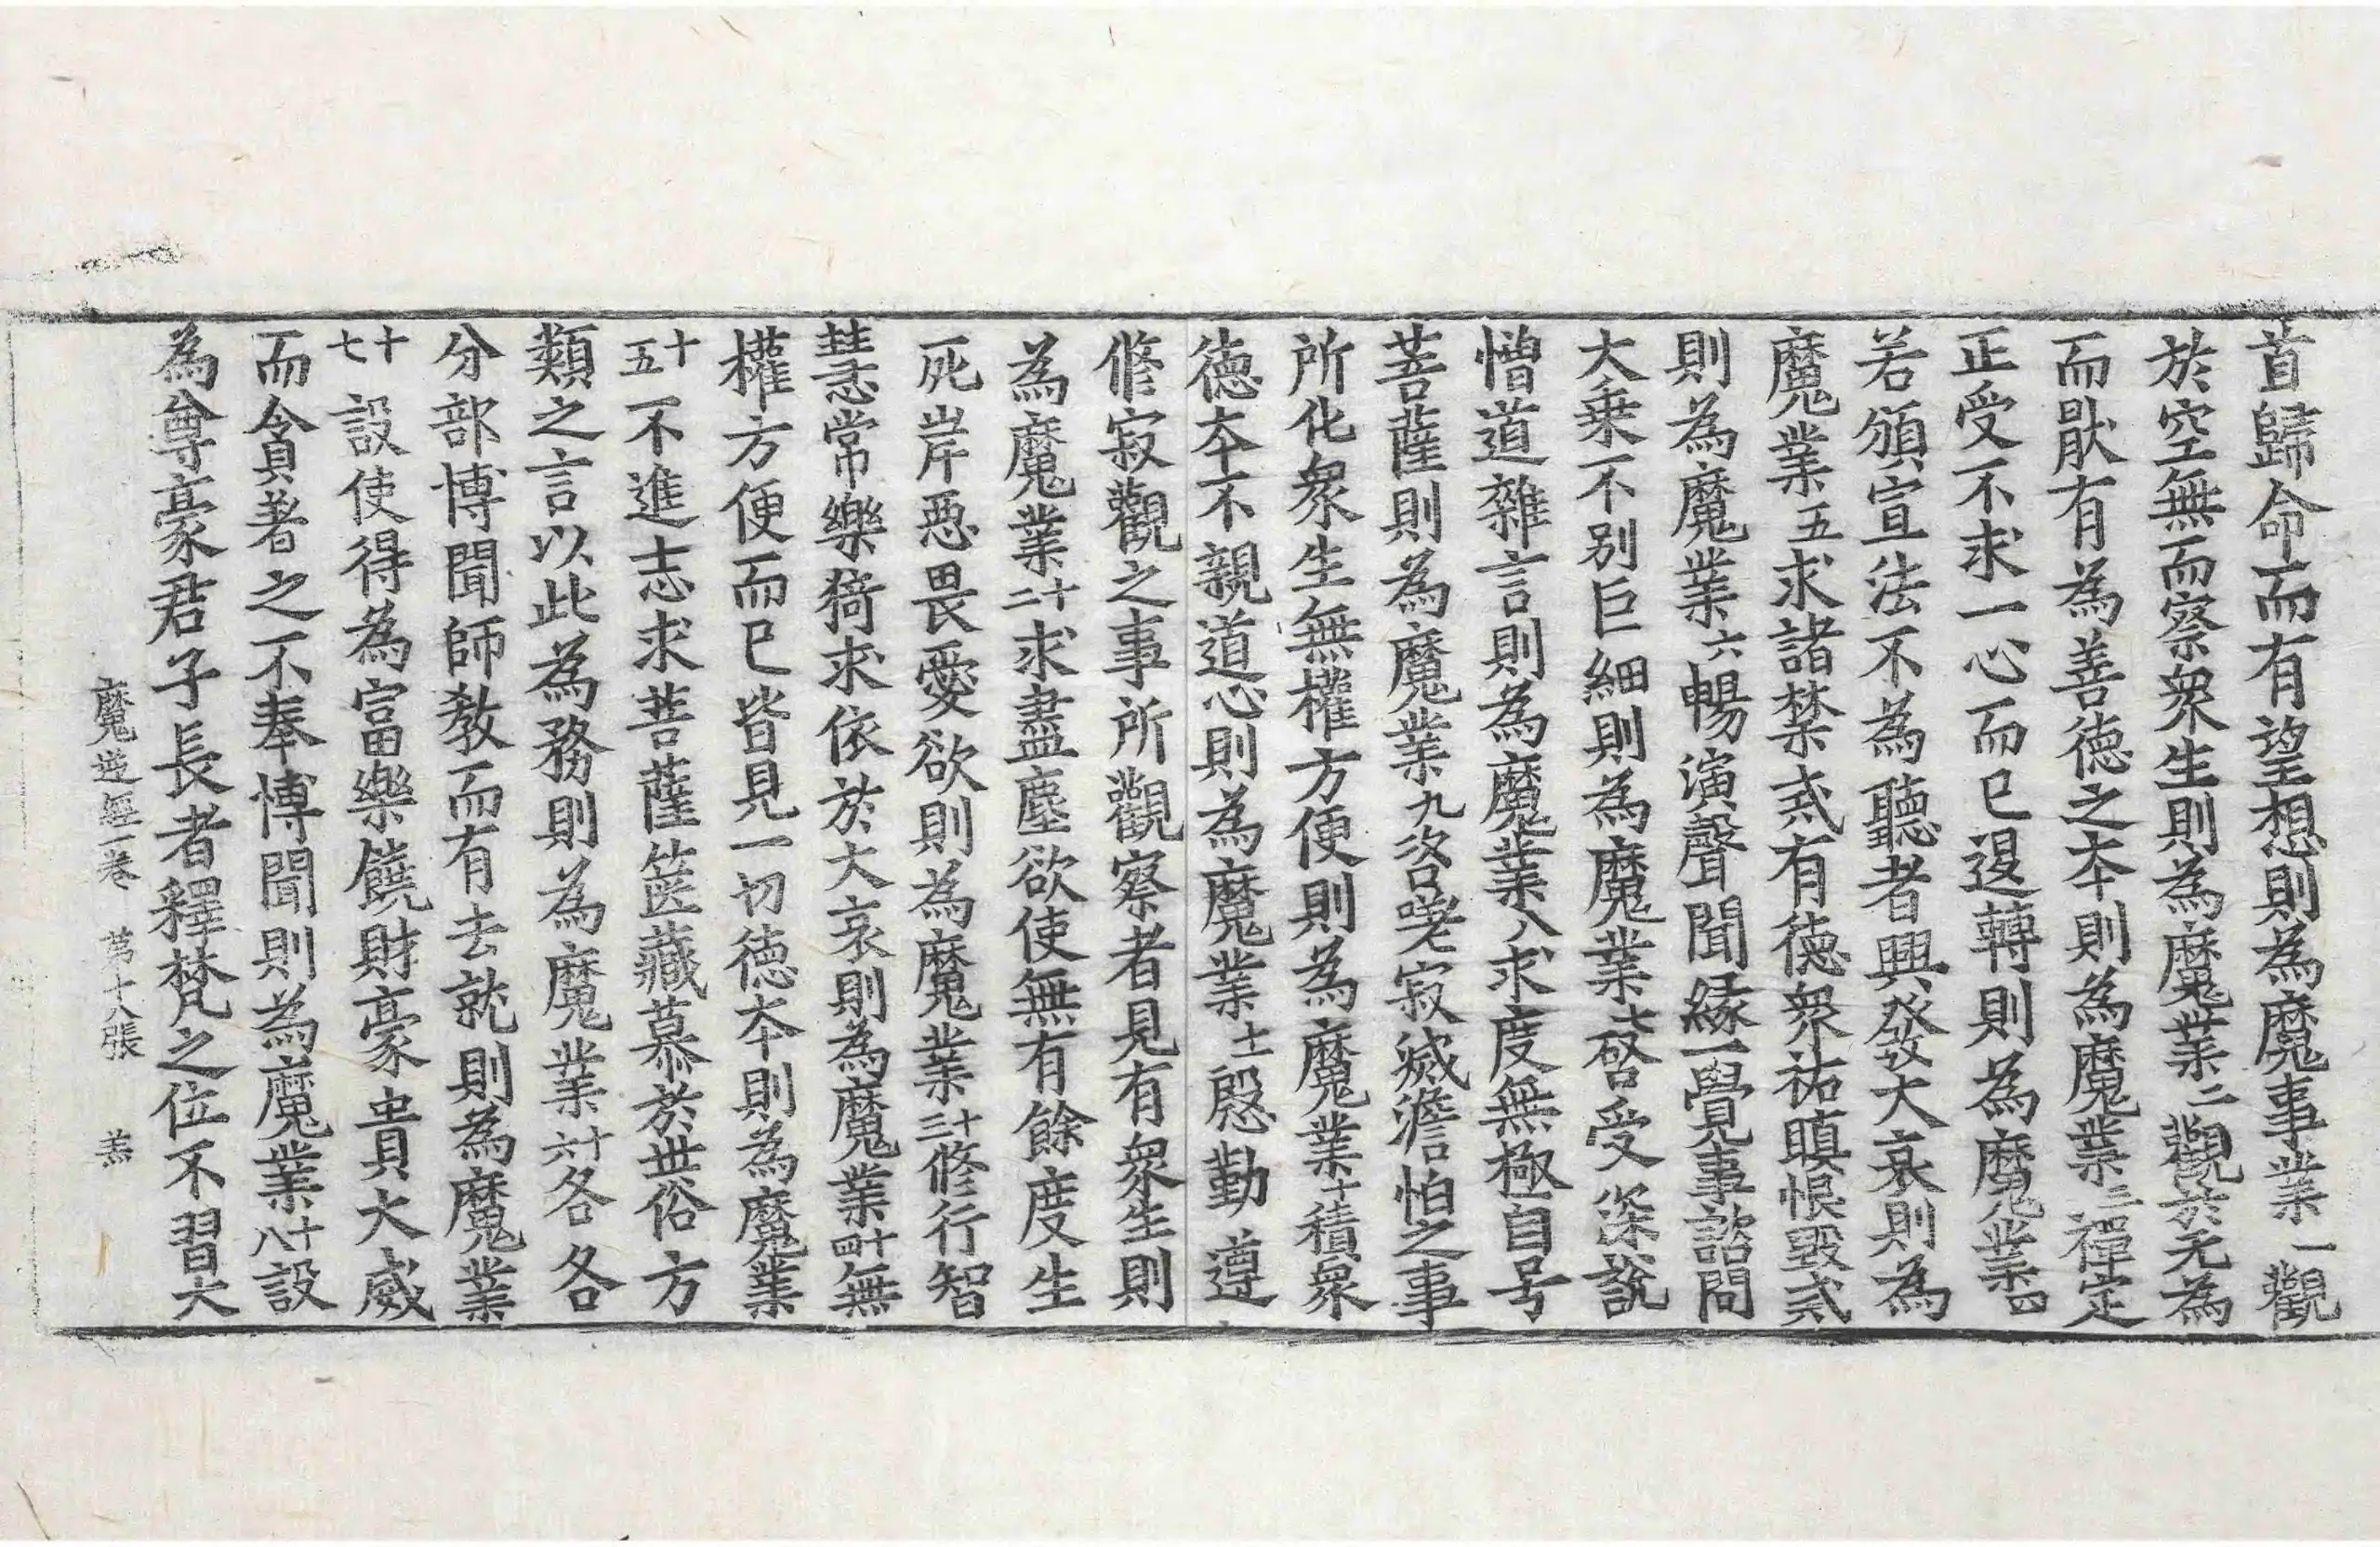 首歸命而有望想則為魔事業一觀
於空無而察衆生則為魔業二觀於无為
而猒有為善德之本則為魔業三禪定
正受不求一心而已退轉則為魔業四
若頒宣法不為聽者興發大哀則為
魔業五求諸禁戒有德衆祐瞋恨毀戒
則為魔業六暢演聲聞縁一覺事諮問
大乗不別巨細則為魔業七啓受深說
憎道雜言則為魔業八求度無極自号
菩薩則為魔業九咨嗟寂滅澹怕之事
所化衆生無權方便則為魔業十積衆
德夲不親道心則為魔業十一慇勤遵
修寂觀之事所觀察者見有衆生則
為魔業十二求盡塵欲使無有餘度生
死岸惡畏愛欲則為魔業十三修行智
慧常樂猗求依於大哀則為魔業十四無
權方便而已皆見一切德夲則為魔業
十五不進志求菩薩篋藏慕於世俗方
類之言以此為務則為魔業十六各各
分部博聞師教而有去就則為魔業
十七設使得為富樂饒財豪貴大威
而貪著之不奉博聞則為魔業十八設
為尊豪君子長者釋梵之位不習大
魔逆經一卷 第十八張 羔